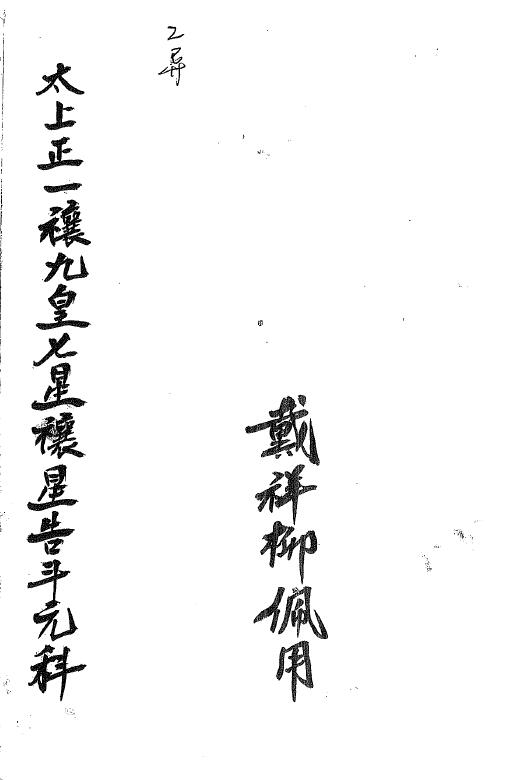 戴祥柳佩用
太上正一禳九皇七星禳星告斗元科